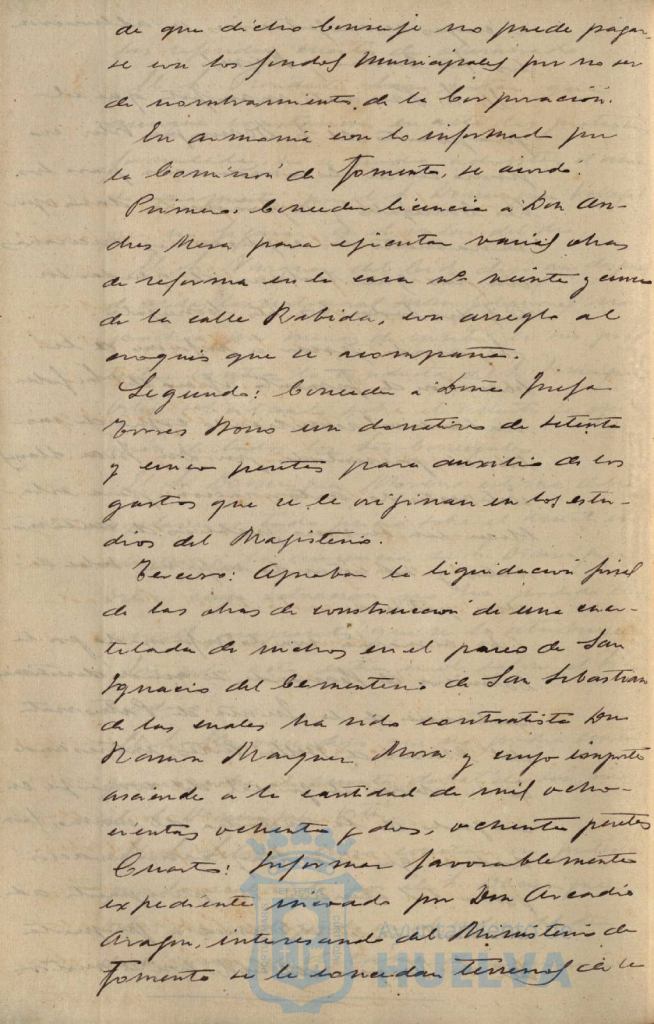 de que dicho Conserje no puede pagar-
se con los fondos Municipales por no ser
de nombramiento de la Corporación.
En armonia con lo informado por
la Comisión de Fomento, se acordó:
Primero: Conceder licencia a Don An-
dres Mesa para ejecutar varias obras
de reforma en la casa nº veinte y cinco
de la calle Rabida, con arreglo al
croquis que se acompaña.
Segundo: Conceder a Doña Josefa
Torres un donativo de setenta
y cinco pesetas para auxilio de los
gastos que se le originan en los estu-
dios del Magisterio.
Tercero: Aprobar la liquidación final
de las obras de construcción de una cuar-
telada de nichos en el paseo de San
Ignacio del Cementerio de San Sebastian
de las cuales ha sido contratista Don
Ramon Marquez Mora y cuyo importe
asciende a la cantidad de mil ocho-
cientas ochenta y dos, ochenta pesetas
Cuarto: Informar favorablemente
expediente incoado por Don Arcadio
Aragon, interesando del Ministerio de
Fomento se le concedan terrenos de la
HUELVA